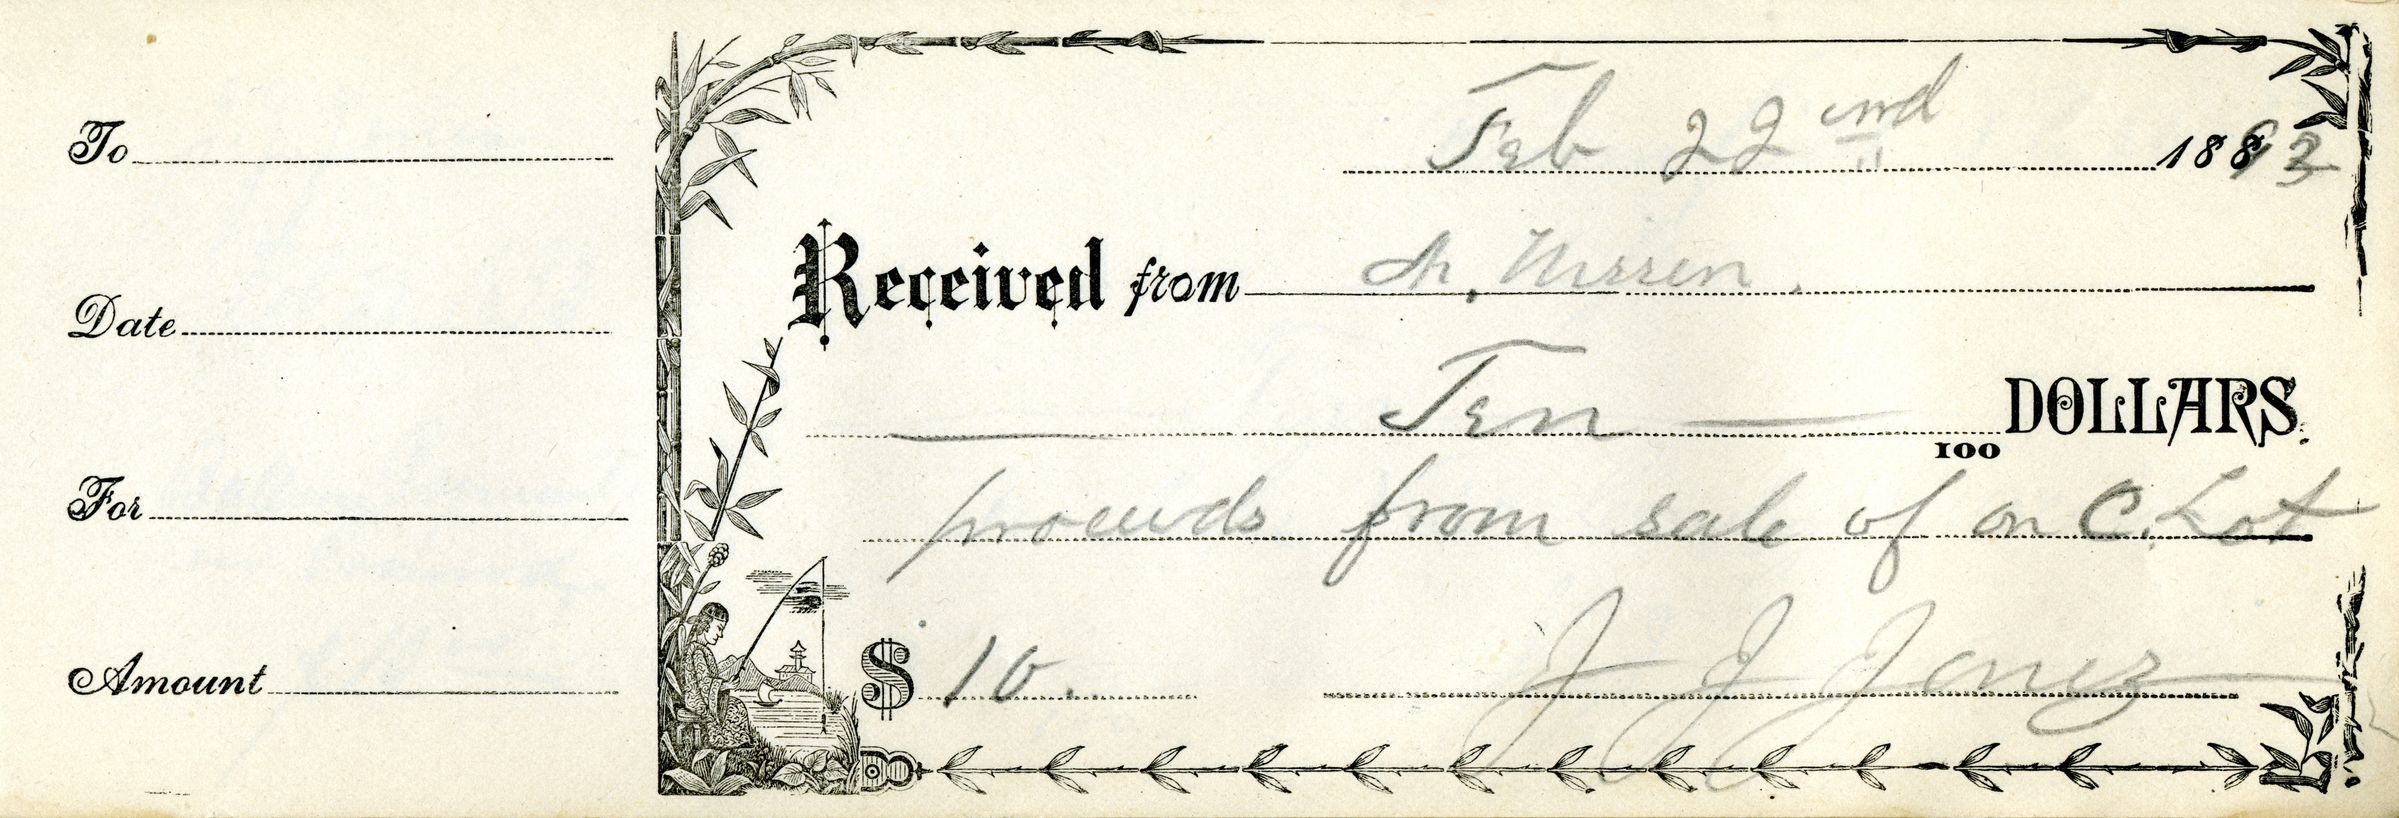 To
Date
For
Amount
Feb 22nd 1893
Received from Ch. Nissen.
Ten
100 DOLLARS.
proceeds from sale of on C. Lot
$ 10.
J J Jones